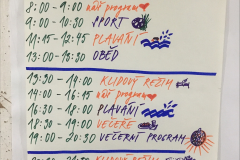 8:00 - 9:00 náš program
9:00 - 10:30 SPORT
11:15 - 12:45 PLAVÁNÍ
13:00 - 13:30 OBĚD
13:30 - 14:00 KLIDOVÝ REŽIM
14:00 - 16:00 náš program
16:30 - 18:00 PLAVÁNÍ
18:30 - 19:00 VEČEŘE
19:00 - 20:30 VEČERNÍ PROGRAM
KLIDOVÝ REŽIM